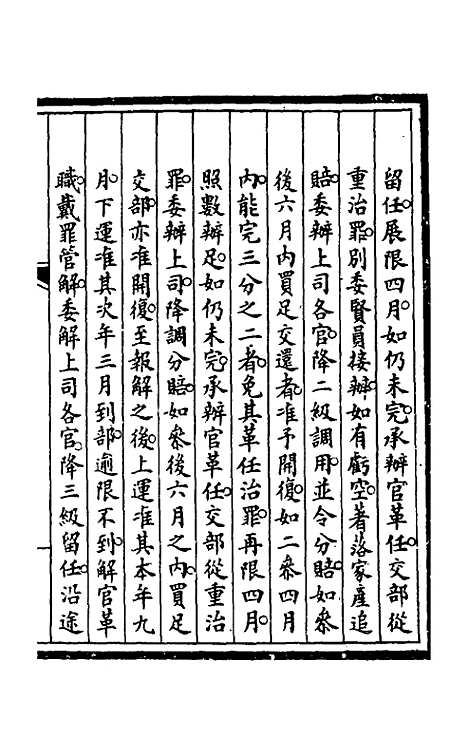 留任。展限四月。如仍未完。承辦官革任。交部從
重治罪。別委賢員接辦。如有虧空。著落家產追
賠。委辦上司各官。降二級調用。並令分賠。如參
後六月內買足交還者。准予開復。如二參四月
內。能完三分之二者。免其革任治罪。再限四月。
照數辦足。如仍未完。承辦官革任。交部從重治
罪。委辦上司。降調分賠。如參後六月之內。買足
交部。亦准開復。至報解之後。上運准其本年九
月。下運准其次年三月到部。逾限不到。解官革
職。戴罪管解。委解上司各官。降三級留任。沿途